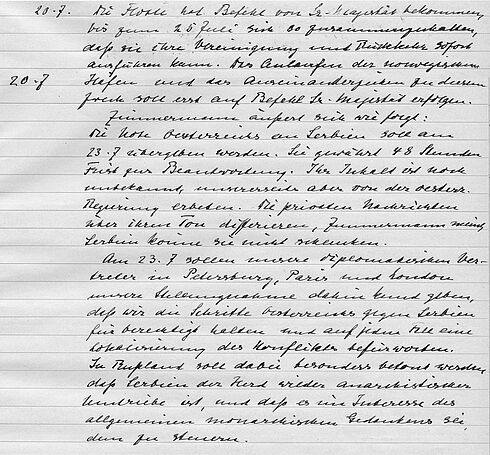 20.7. Die Flotte hat Befehl von Sr. Majestät bekommen,
bis zum 25 Juli sich so zusammenzuhalten,
daß sie ihre Vereinigung und Rückkehr sofort
ausführen kann. Das Anlaufen der norwegischen
20.7 Häfen und das Auseinanderziehen zu diesem
Zweck soll erst auf Befehl Sr. Majestät erfolgen.
Zimmermann äußert sich wie folgt:
Die Note Oesterreichs an Serbien soll am
23.7 übergeben werden. Sie gewährt 48 Stunden
Frist zur Beantwortung. Ihr Inhalt ist noch
unbekannt, unsererseits aber von der oesterr.
Regierung erbeten. Die privaten Nachrichten
über ihren Ton differieren, Zimmermann meint,
Serbien könne sie nicht schlucken.
Am 23.7 sollen unsere diplomatischen Ver-
treter in Petersburg, Paris und London
unsere Stellungnahme dahin kund geben,
daß wir die Schritte Oesterreichs gegen Serbien
für berechtigt halten und auf jeden Fall eine
Lokalisierung des Konfliktes befürworten.
In Rußland soll dabei besonders betont werden,
daß Serbien der Herd wieder anarchistischer
Umtriebe ist, und daß es im Interesse des
allgemeinen monarchischen Gedankens sei,
dem zu steuern.